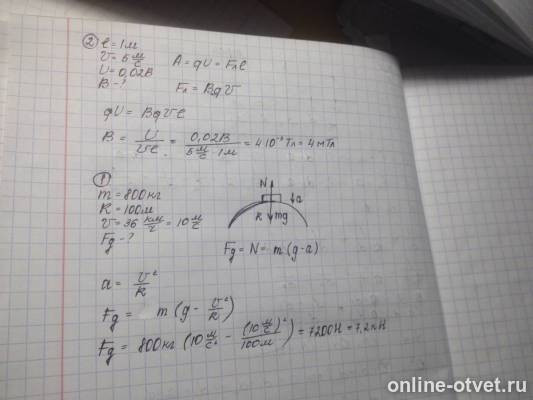 ② l = 1м
υ = 5 м/с
U = 0,02В
B - ?
A = qU = Fлl
Fл = Bqυ
qU = Bqυl
B = U/υl = 0,02В/(5 м/с · 1м) = 4·10⁻³ Тл = 4 мТл
①
m = 800кг
R = 100м
υ = 36 км/ч = 10 м/с
Fg - ?
N
a
R
mg
Fg = N = m(g-a)
a = υ²/R
Fg = m(g - υ²/R)
Fg = 800кг (10 м/с² - (10 м/с)²/100м) = 7200Н = 7,2кН
online-otvet.ru